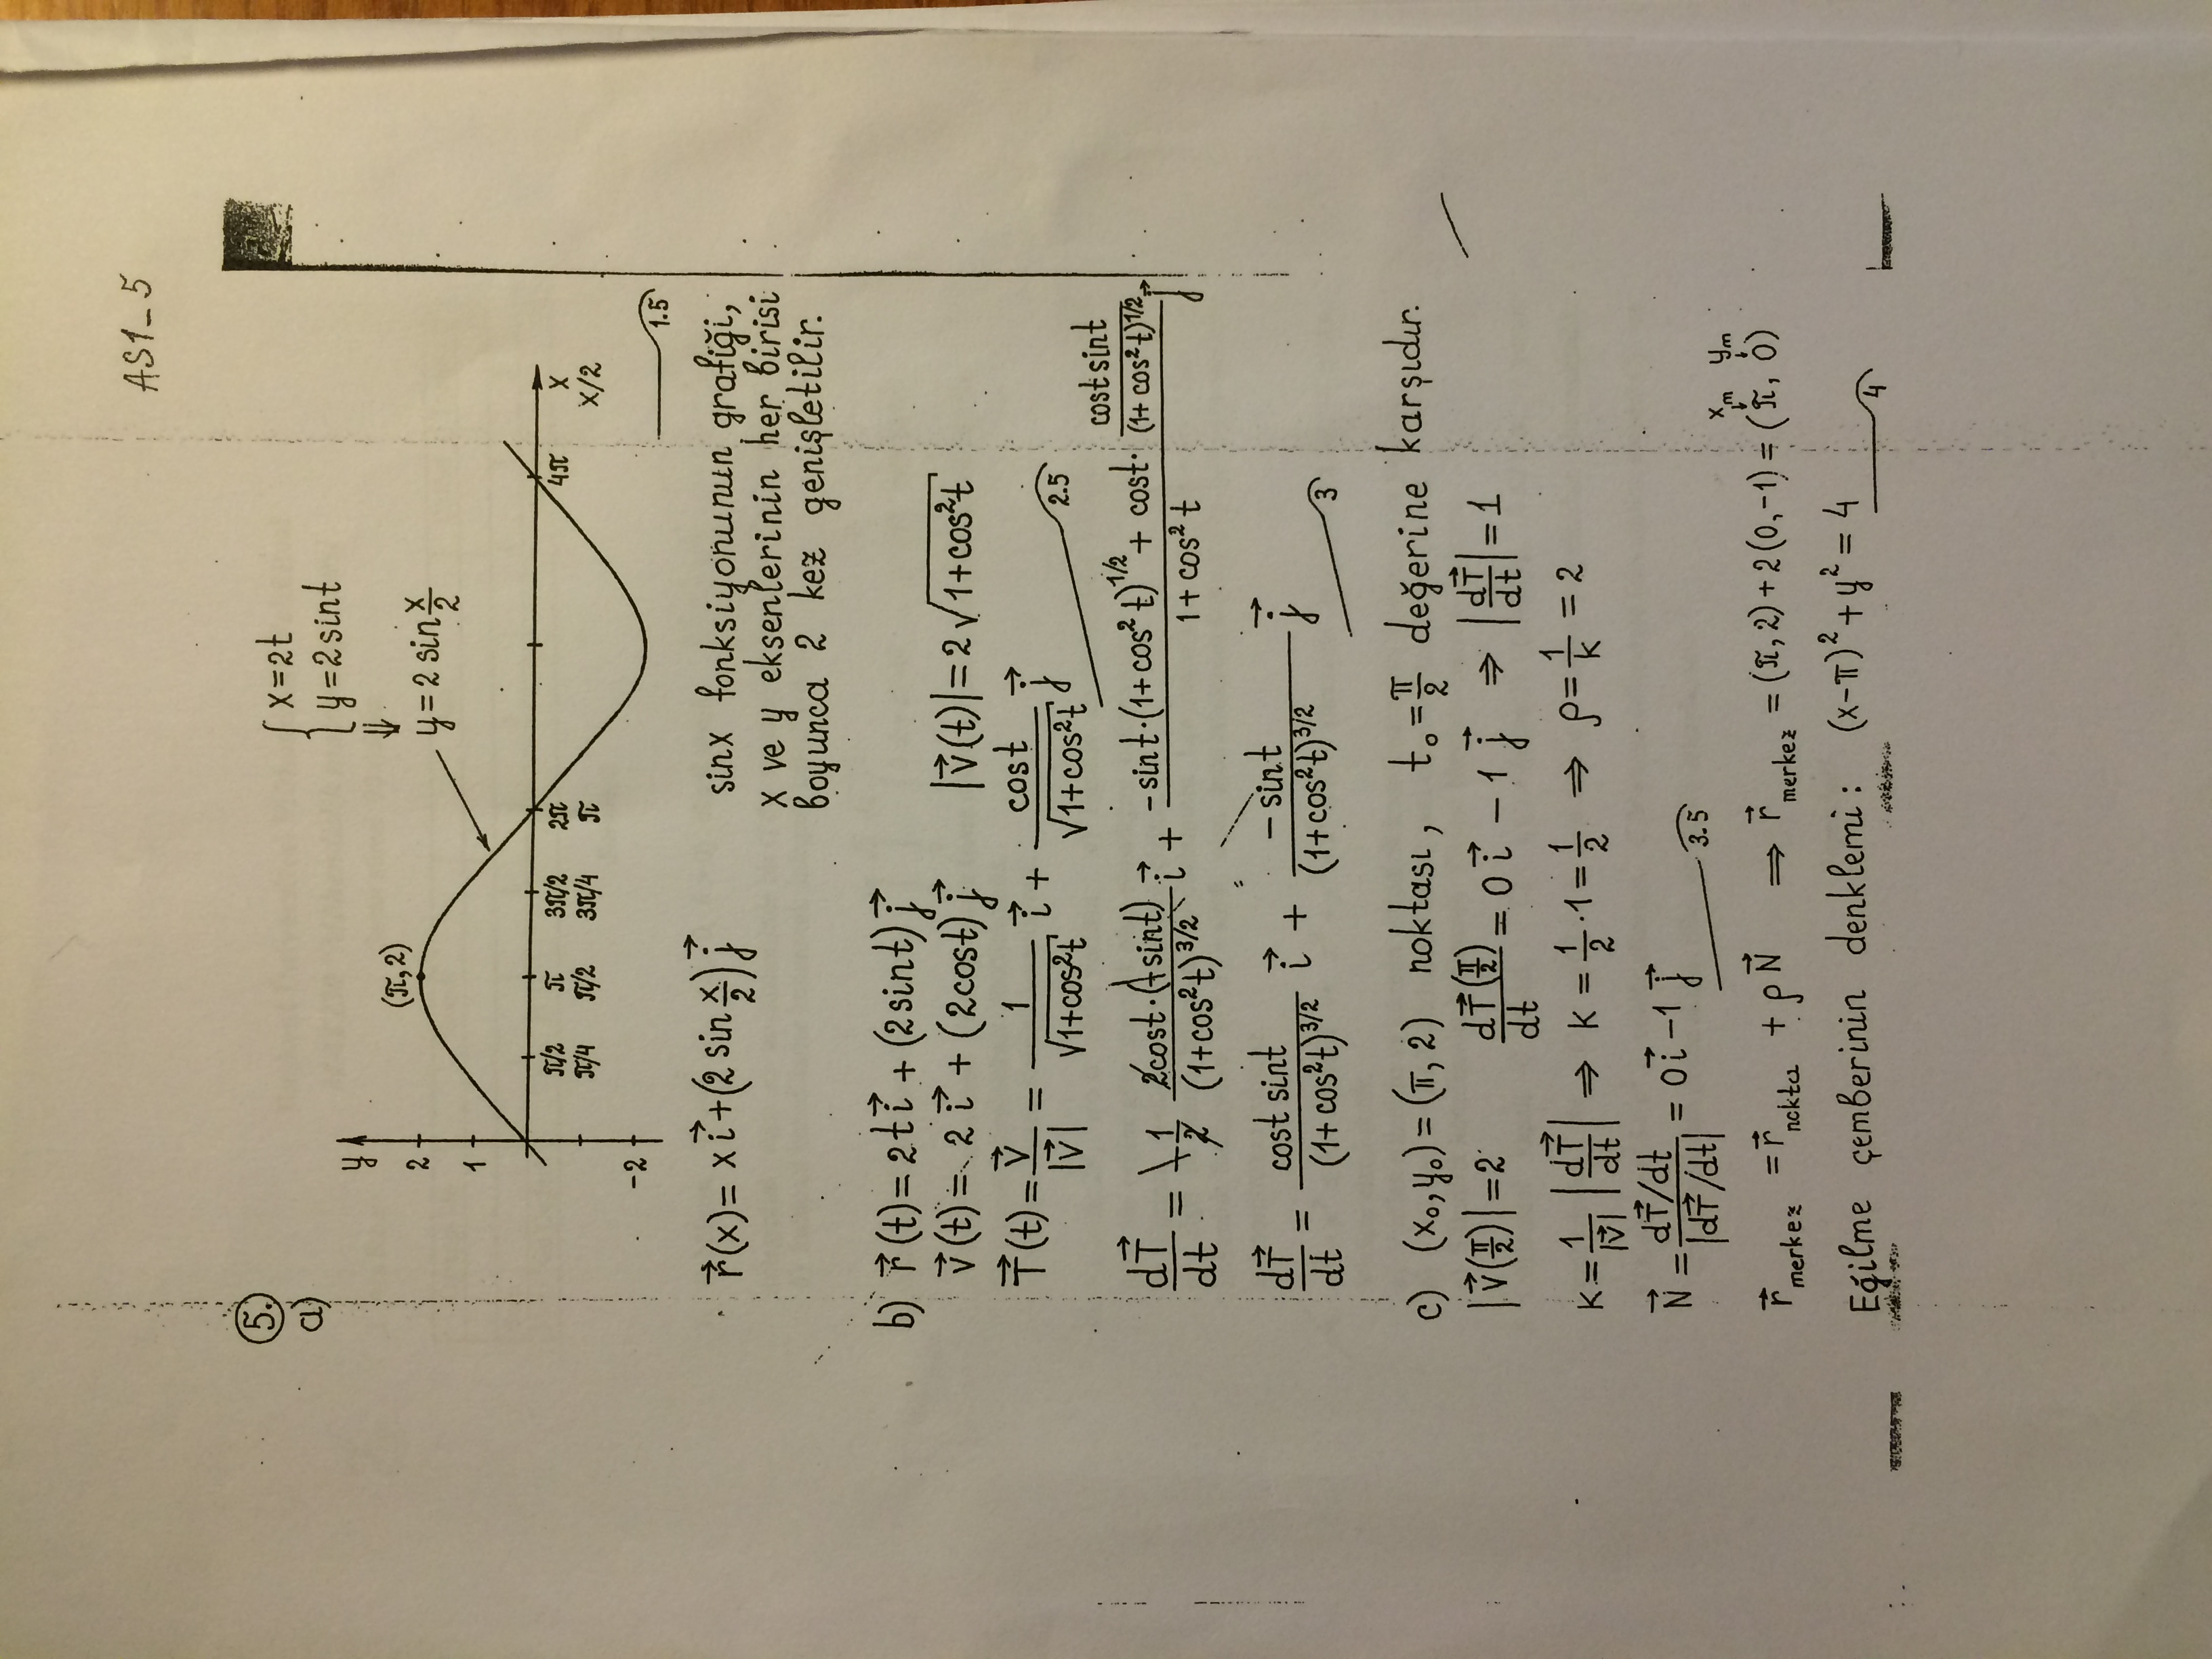 AS1_5
5.
a)
x=2t
y=2sint
⇓
y=2 sin x/2
y
(π,2)
2
1
-2
π/2 π 3π/2 2π 4π x
π/4 π/2 3π/4 π x/2
1.5
r⃗(x)= x i⃗+(2 sin x/2) j⃗
sinx fonksiyonunun grafiği,
x ve y eksenlerinin her birisi
boyunca 2 kez genişletilir.
b) r⃗(t)=2t i⃗ + (2sint) j⃗
v⃗(t)= 2 i⃗ + (2cost) j⃗ |v⃗(t)|=2√(1+cos²t)
T⃗(t)= v⃗/|v⃗| = 1/√(1+cos²t) i⃗ + cost/√(1+cos²t) j⃗
2.5
dT⃗/dt = -1/2 2cost·(-sint)/(1+cos²t)^3/2 i⃗ + (-sint·(1+cos²t)^1/2 + cost· cost sint/(1+cos²t)^1/2)/(1+cos²t) j⃗
dT⃗/dt = cost sint/(1+cos²t)^3/2 i⃗ + -sint/(1+cos²t)^3/2 j⃗
3
c) (x₀,y₀)=(π,2) noktası, t₀=π/2 değerine karşıdır.
|v⃗(π/2)|=2 dT⃗(π/2)/dt = 0 i⃗ - 1 j⃗ ⇒ |dT⃗/dt|=1
K= 1/|v⃗| |dT⃗/dt| ⇒ K = 1/2·1=1/2 ⇒ ρ=1/K = 2
N⃗ = (dT⃗/dt)/|dT⃗/dt| = 0 i⃗ -1 j⃗
3.5
xₘ yₘ
r⃗merkez = r⃗nokta + ρN⃗ ⇒ r⃗merkez = (π,2)+2(0,-1) = (π, 0)
Eğilme çemberinin denklemi: (x-π)²+y²=4
4